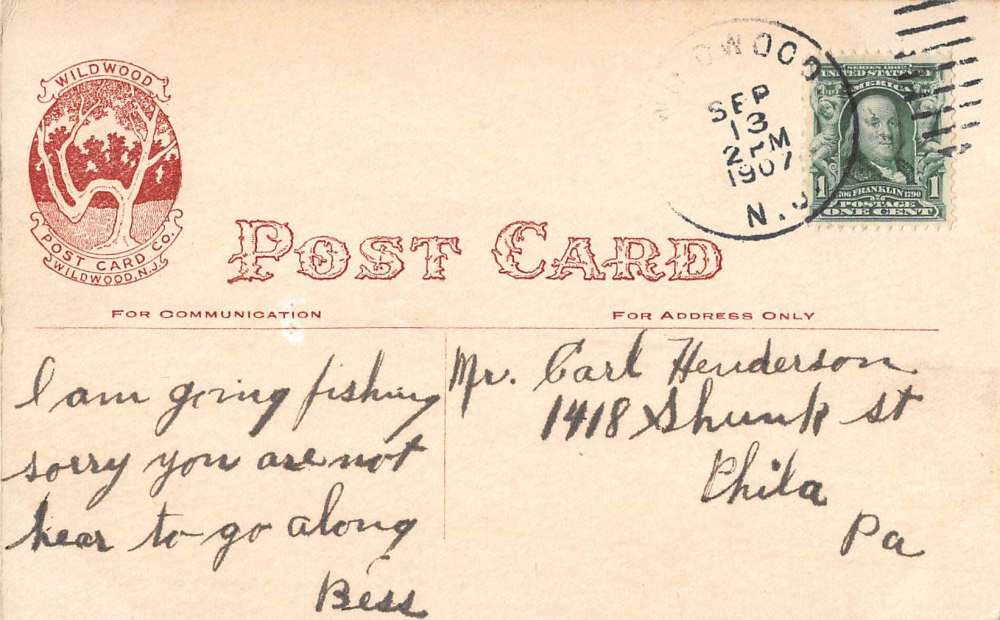 WILDWOOD
POST CARD CO.
WILDWOOD, N.J.
WILDWOOD
SEP
13
2 PM
1907
N.J.
SERIES 1902
UNITED STATES OF
AMERICA
1
1706 FRANKLIN 1790
1
POSTAGE
ONE CENT
POST CARD
FOR COMMUNICATION
FOR ADDRESS ONLY
I am going fishing
sorry you are not
hear to go along
Bess
Mr. Carl Henderson
1418 Shunk st
Phila
Pa